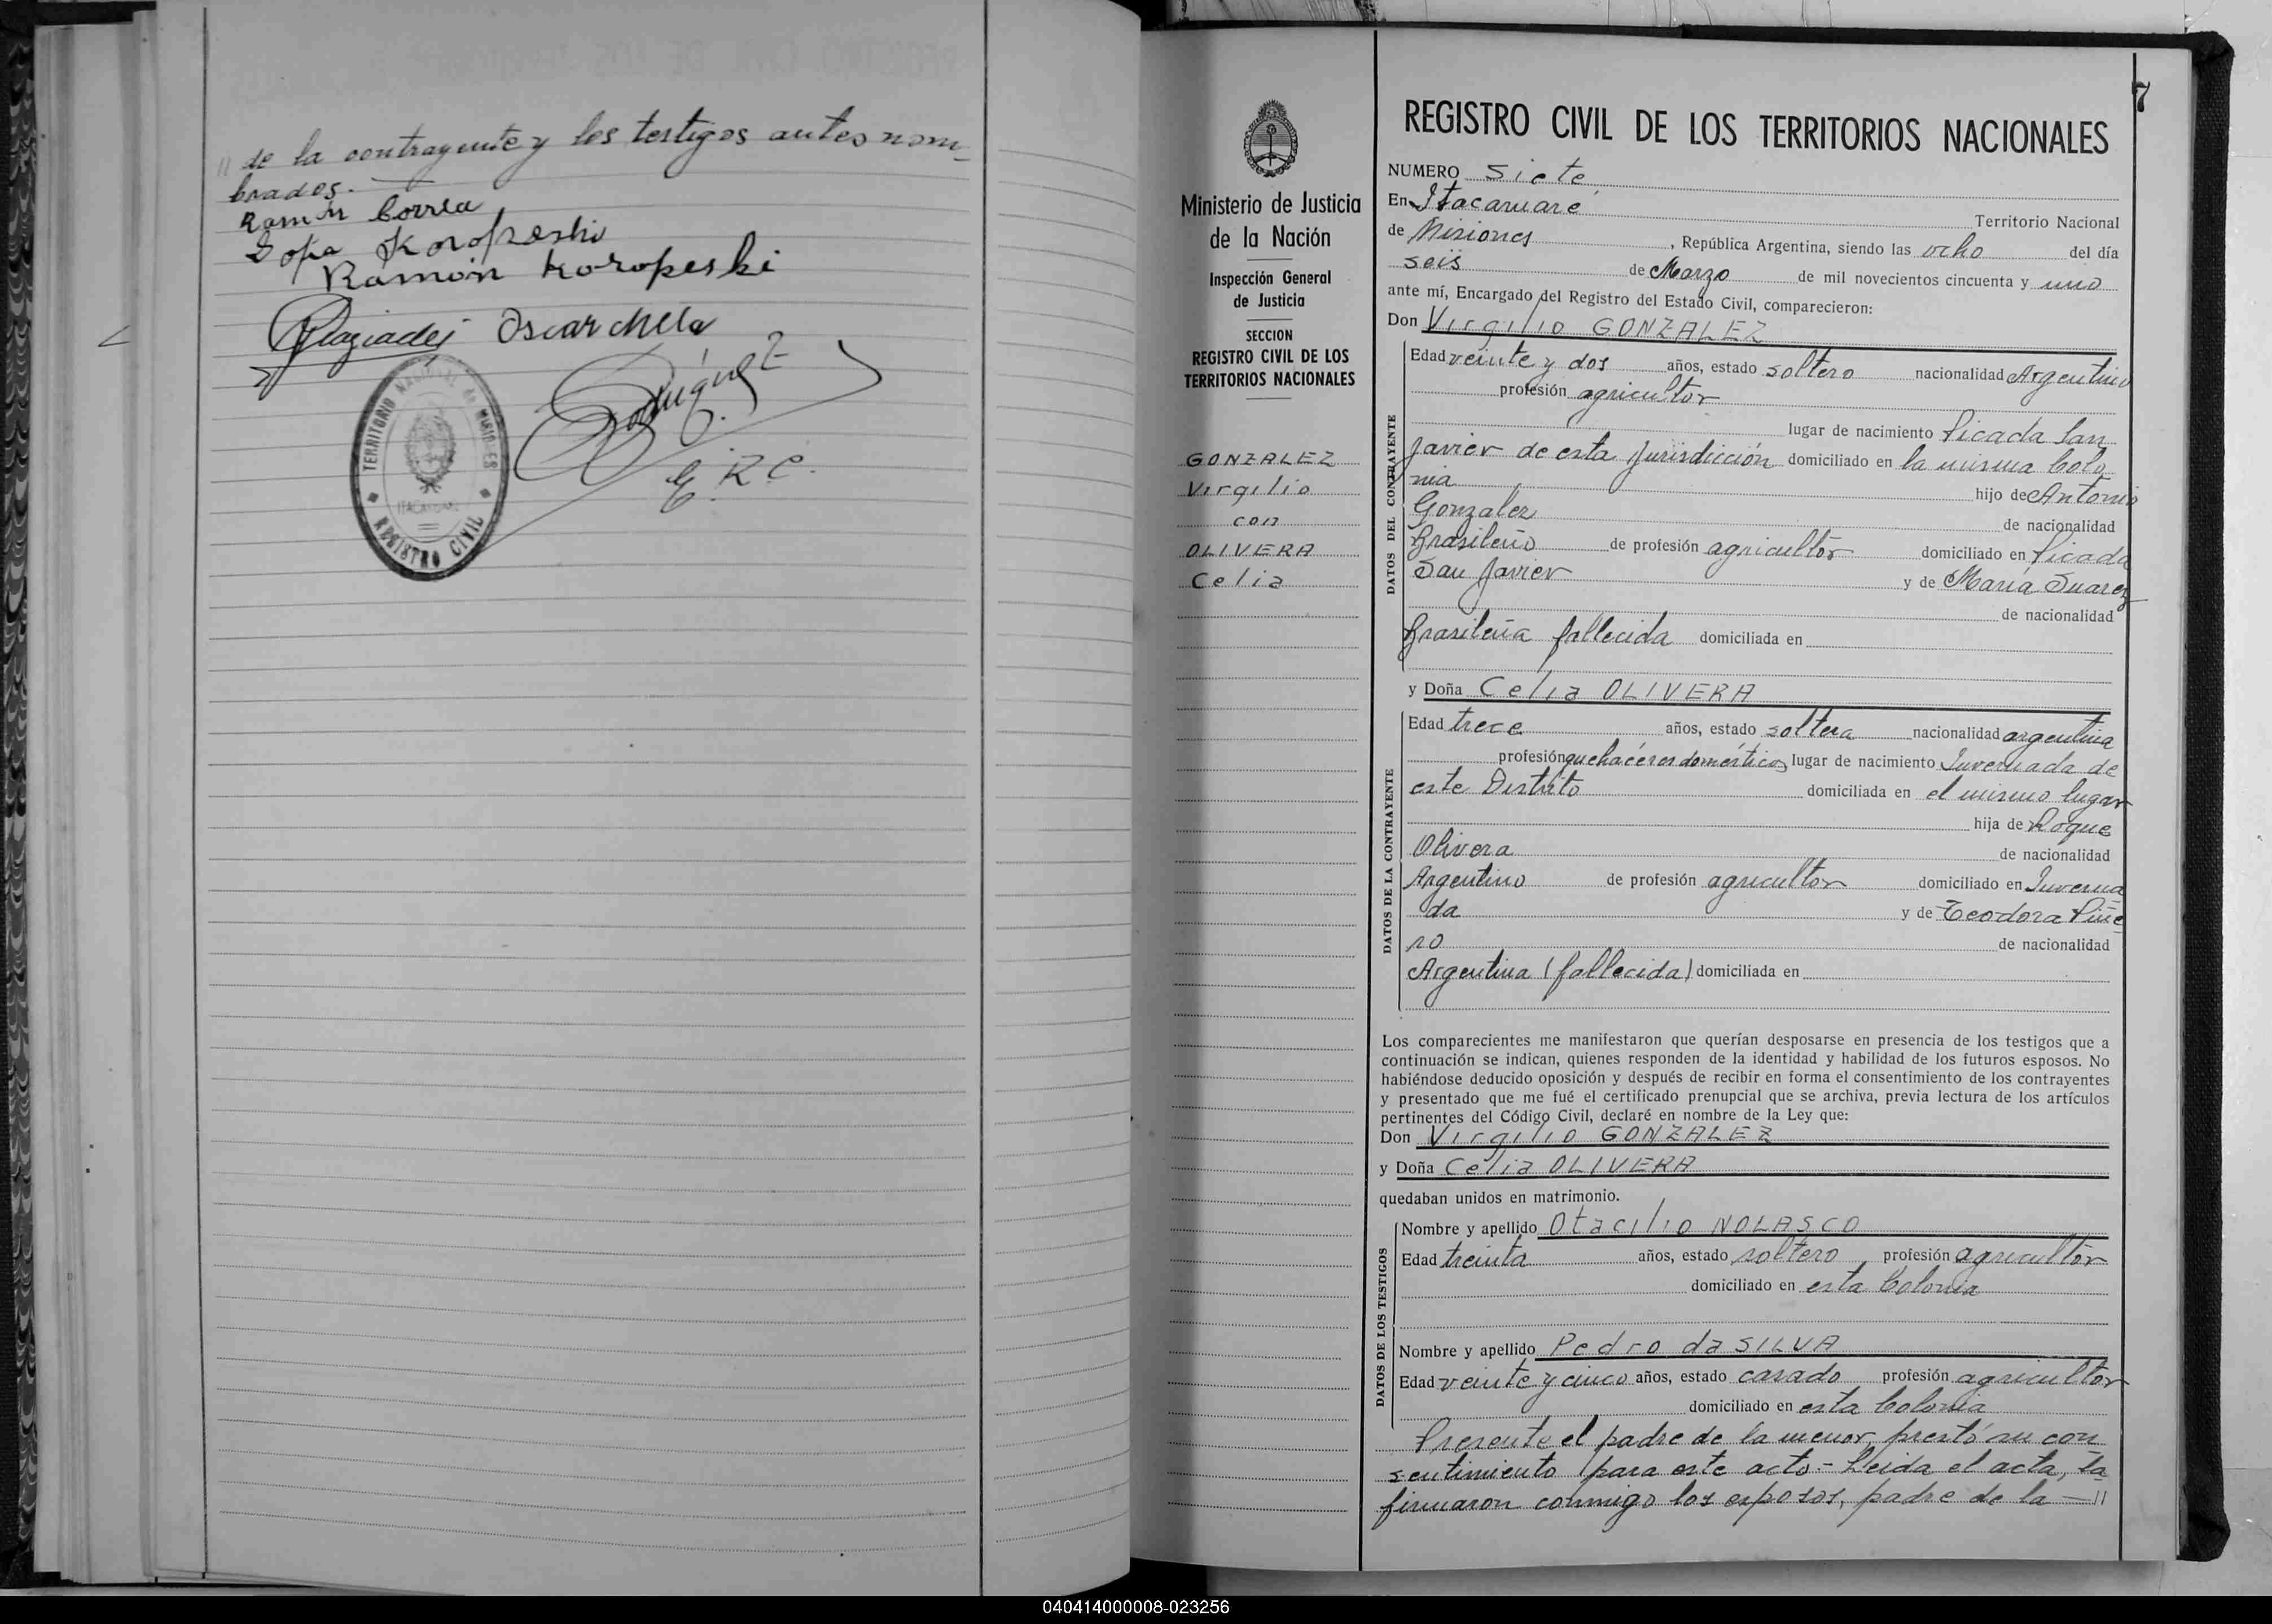 // de la contrayente y los testigos antes nom-
brados.-
Ramón Correa
Sofia Koropeski
Ramón Koropeski
Oscar
Rodríguez
E. R. C.
TERRITORIO NACIONAL DE MISIONES
ITACARUARE
REGISTRO CIVIL
7
Ministerio de Justicia
de la Nación
Inspección General
de Justicia
SECCION
REGISTRO CIVIL DE LOS
TERRITORIOS NACIONALES
GONZALEZ
Virgilio
con
OLIVERA
Celia
REGISTRO CIVIL DE LOS TERRITORIOS NACIONALES
NUMERO Siete
En Itacaruaré
Territorio Nacional
de Misiones, República Argentina, siendo las ocho del día
seis de Marzo de mil novecientos cincuenta y uno
ante mí, Encargado del Registro del Estado Civil, comparecieron:
Don Virgilio GONZALEZ
DATOS DEL CONTRAYENTE
Edad veinte y dos años, estado soltero nacionalidad Argentino
profesión agricultor
lugar de nacimiento Picada San
Javier de esta Jurisdicción domiciliado en la misma Colo
nia hijo de Antonio
Gonzalez de nacionalidad
Brasileño de profesión agricultor domiciliado en Picada
San Javier y de María Suarez
de nacionalidad
Brasileña fallecida domiciliada en
y Doña Celia OLIVERA
DATOS DE LA CONTRAYENTE
Edad trece años, estado soltera nacionalidad argentina
profesión quehaceres domésticos lugar de nacimiento Invernada de
este Distrito domiciliada en el mismo lugar
hija de Roque
Olivera de nacionalidad
Argentino de profesión agricultor domiciliado en Inverna
da y de Teodora Piñe
ro de nacionalidad
Argentina (fallecida) domiciliada en
Los comparecientes me manifestaron que querían desposarse en presencia de los testigos que a
continuación se indican, quienes responden de la identidad y habilidad de los futuros esposos. No
habiéndose deducido oposición y después de recibir en forma el consentimiento de los contrayentes
y presentado que me fué el certificado prenupcial que se archiva, previa lectura de los artículos
pertinentes del Código Civil, declaré en nombre de la Ley que:
Don Virgilio GONZALEZ
y Doña Celia OLIVERA
quedaban unidos en matrimonio.
DATOS DE LOS TESTIGOS
Nombre y apellido Otacilio NOLASCO
Edad treinta años, estado soltero profesión agricultor
domiciliado en esta Colonia
Nombre y apellido Pedro da SILVA
Edad veinte y cinco años, estado casado profesión agricultor
domiciliado en esta Colonia
Presente el padre de la menor prestó su con
sentimiento para este acto.- Leida el acta, la
firmaron conmigo los esposos, padre de la —//
040414000008-023256